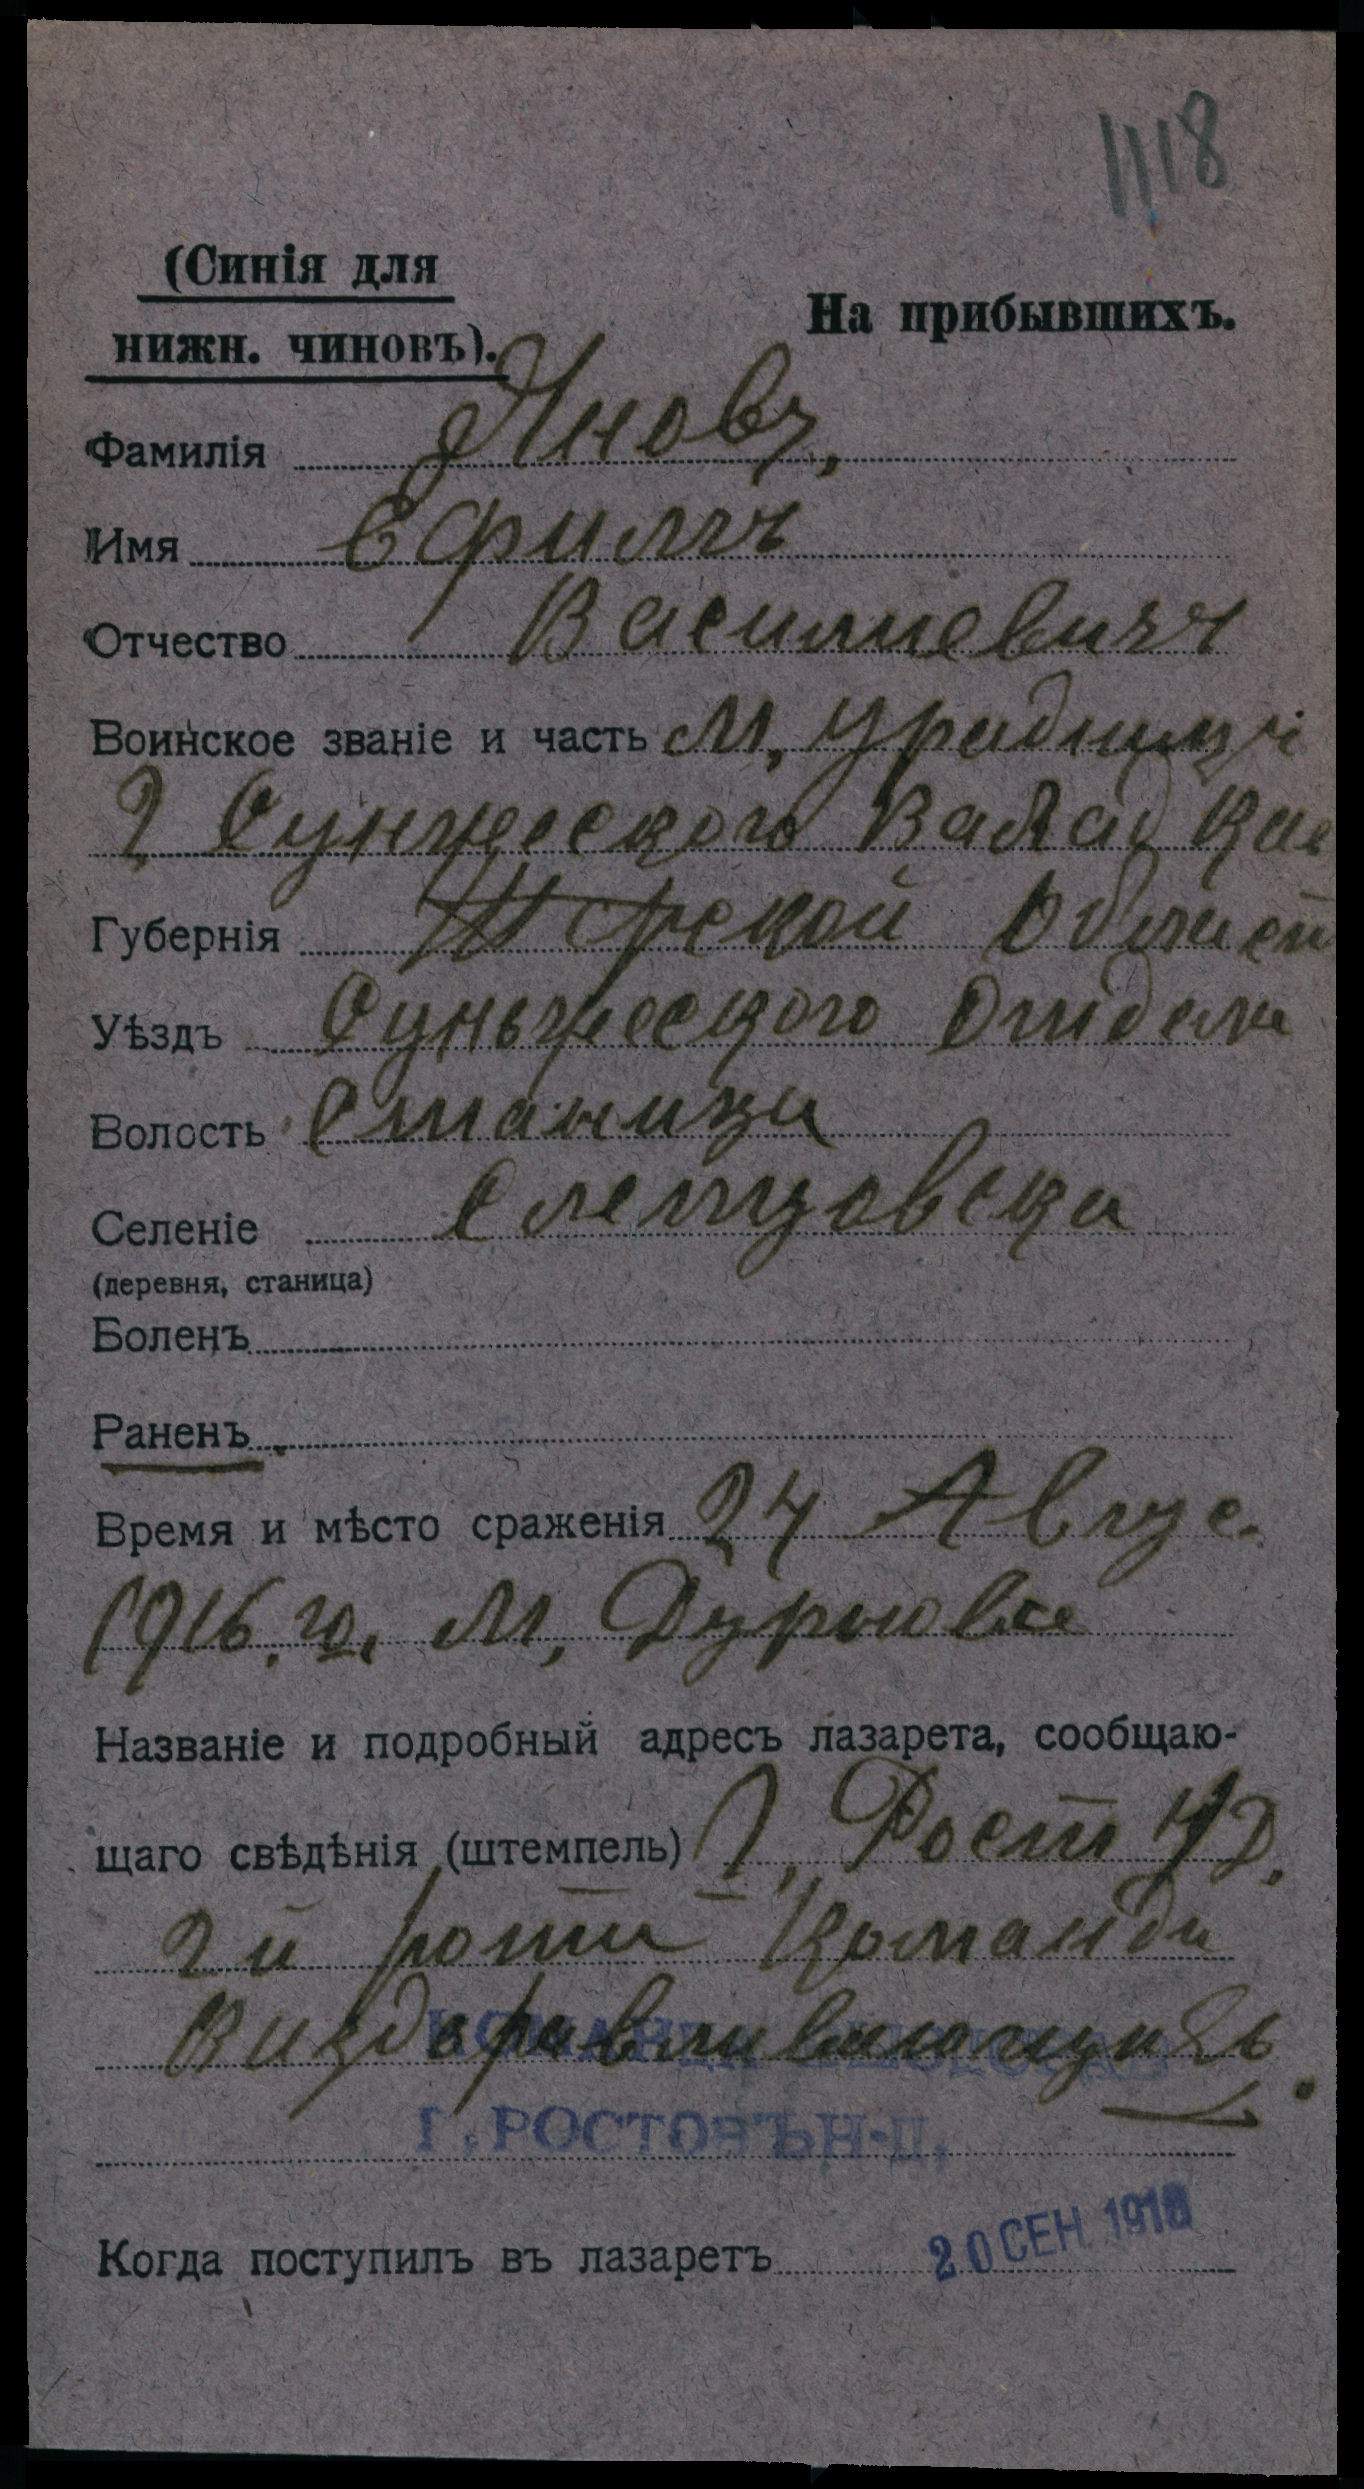 1118
(Синія для
нижн. чиновъ).
На прибывшихъ.
Фамилія Яновъ,
Имя Ефимъ
Отчество Василиевичъ
Воинское званіе и часть М. Урадникъ
2 Сунжеского Валад Кав
Губернія Терской Област
Уѣздъ Суньжеского Отдела
Волость Станица
Селеніе Слепцовска
(деревня, станица)
Боленъ
Раненъ
Время и мѣсто сраженія 24 Авгус.
1916. го. М.
Названіе и подробный адресъ лазарета, сообщаю-
щаго свѣдѣнія (штемпель) Г. Рост Н/Д.
2й роти Команди
Виздаравливающихъ.
Г. РОСТОВЪ Н-Д.
Когда поступилъ въ лазаретъ 20 СЕН. 1916